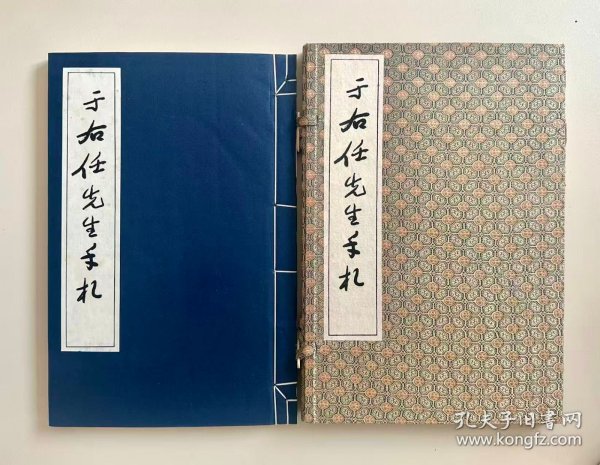 于右任先生手札
于右任先生手札
孔夫子旧书网
www.kongfz.com